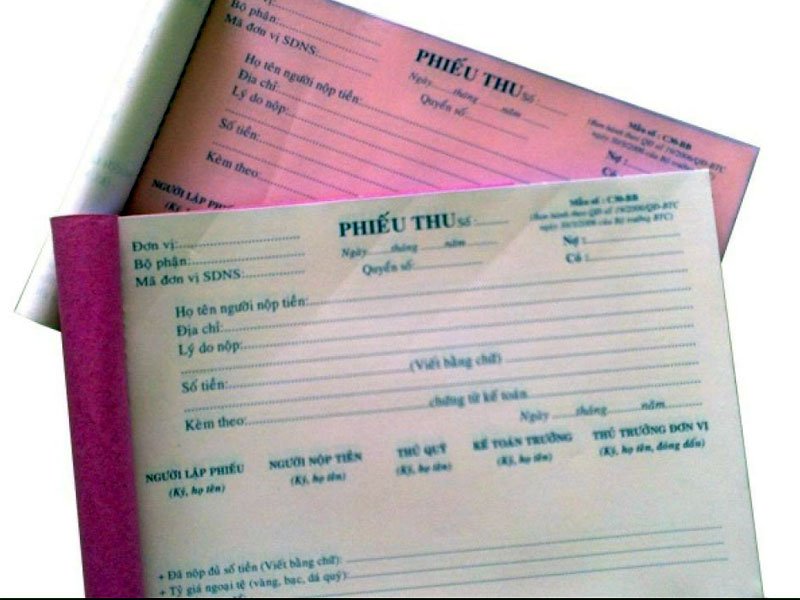 Bộ phận:
Mã đơn vị SDNS:
PHIẾU THU Số :
Ngày.......tháng.......năm
Quyển số:
Mẫu số : C30-BB
(Ban hành theo QĐ số 19/2006/QĐ-BTC
ngày 30/3/2006 của Bộ trưởng
Nợ :
Có :
Họ tên người nộp tiền:
Địa chỉ:
Lý do nộp:
Số tiền:
Kèm theo:
NGƯỜI LẬP PHIẾU
Đơn vị:
Bộ phận:
Mã đơn vị SDNS:
PHIẾU THU Số :
Ngày.......tháng.......năm
Quyển số:
Mẫu số : C30-BB
(Ban hành theo QĐ số 19/2006/QĐ-BTC
ngày 30/3/2006 của Bộ trưởng BTC)
Nợ :
Có :
Họ tên người nộp tiền:
Địa chỉ:
Lý do nộp:
(Viết bằng chữ)
Số tiền:
chứng từ kế toán
Kèm theo:
Ngày.......tháng.......năm
NGƯỜI LẬP PHIẾU NGƯỜI NỘP TIỀN THỦ QUỸ KẾ TOÁN TRƯỞNG THỦ TRƯỞNG ĐƠN VỊ
(Ký, họ tên) (Ký, họ tên) (Ký, họ tên) (Ký, họ tên) (Ký, họ tên, đóng dấu)
+ Đã nộp đủ số tiền (Viết bằng chữ):
+ Tỷ giá ngoại tệ (vàng, bạc, đá quý):